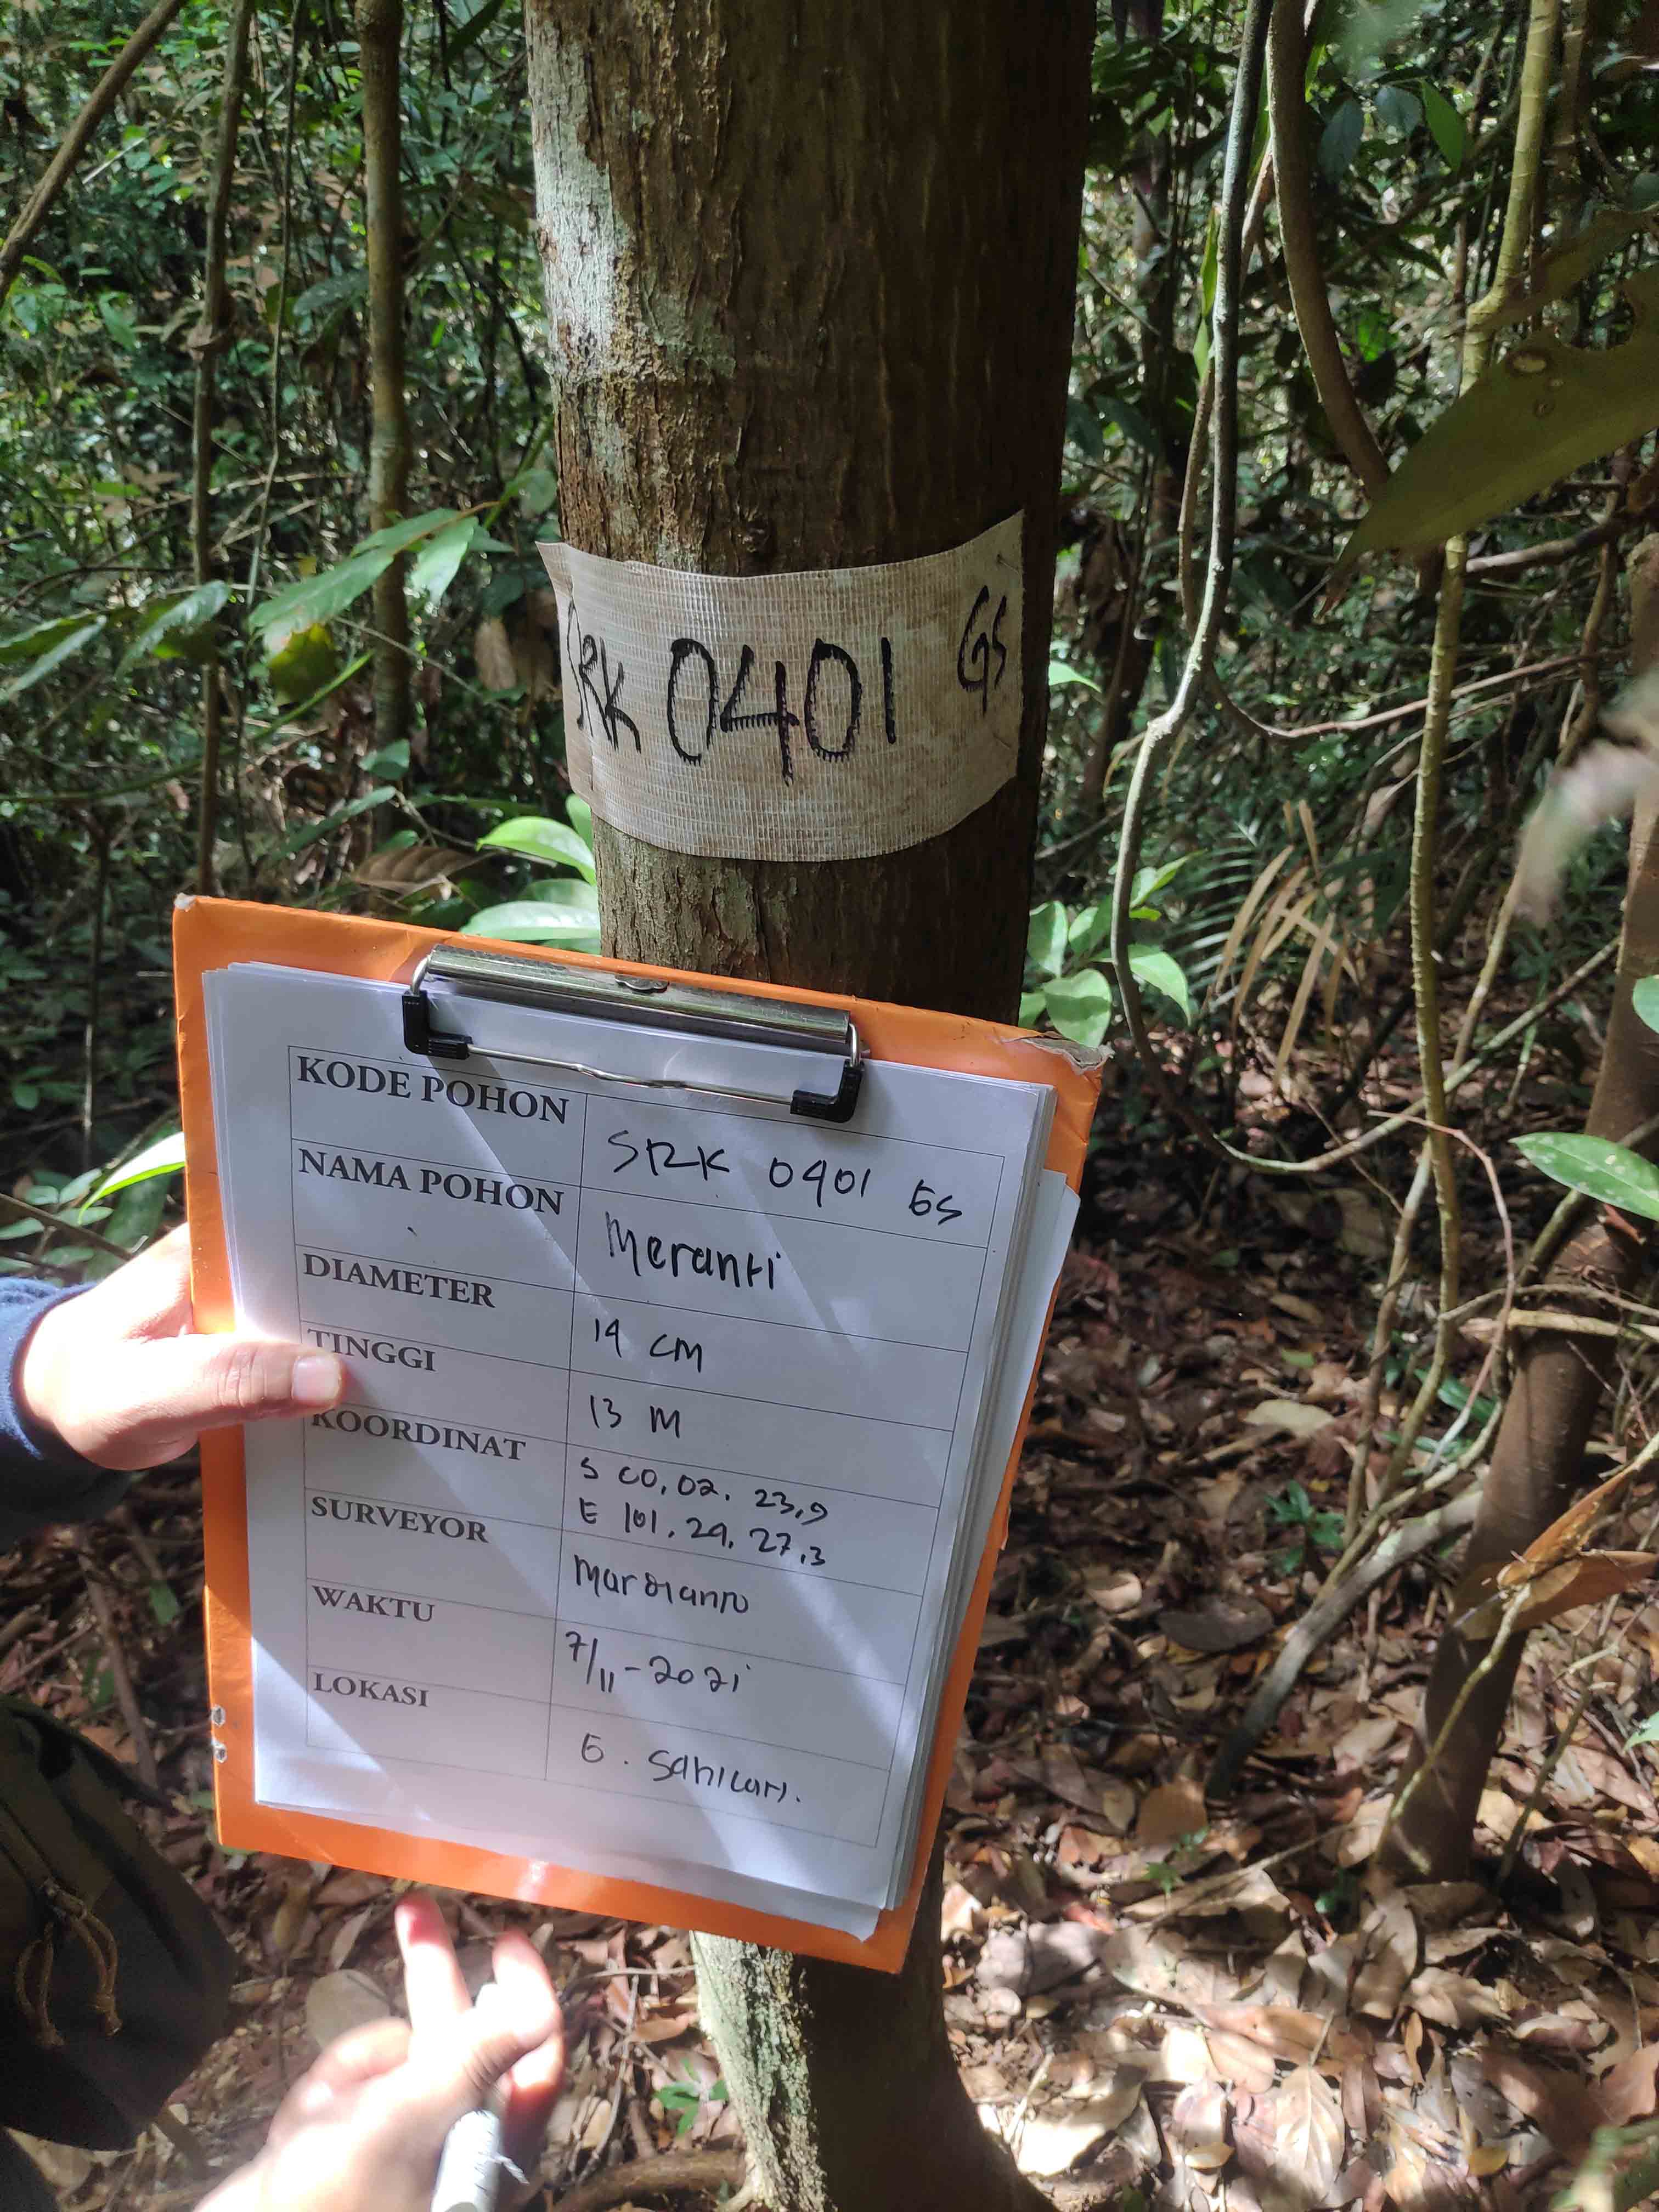 SRK 0401 GS
KODE POHON SRK 0401 GS
NAMA POHON Meranti
DIAMETER 14 CM
TINGGI 13 M
KOORDINAT S 00.02. 23,9
E 101. 29. 27,3
SURVEYOR
WAKTU 7/11-2021
LOKASI